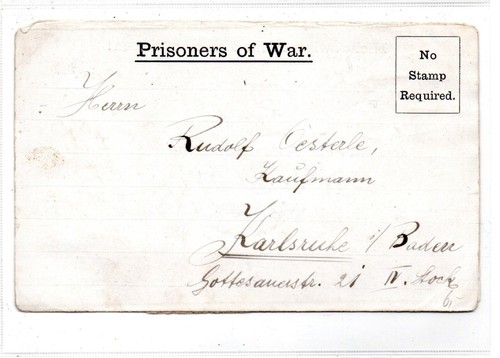 Prisoners of War.
No
Stamp
Required.
Herrn
Rudolf Oesterle,
Kaufmann
Karlsruhe i/Baden
Gottesauerstr. 21 IV. Stock